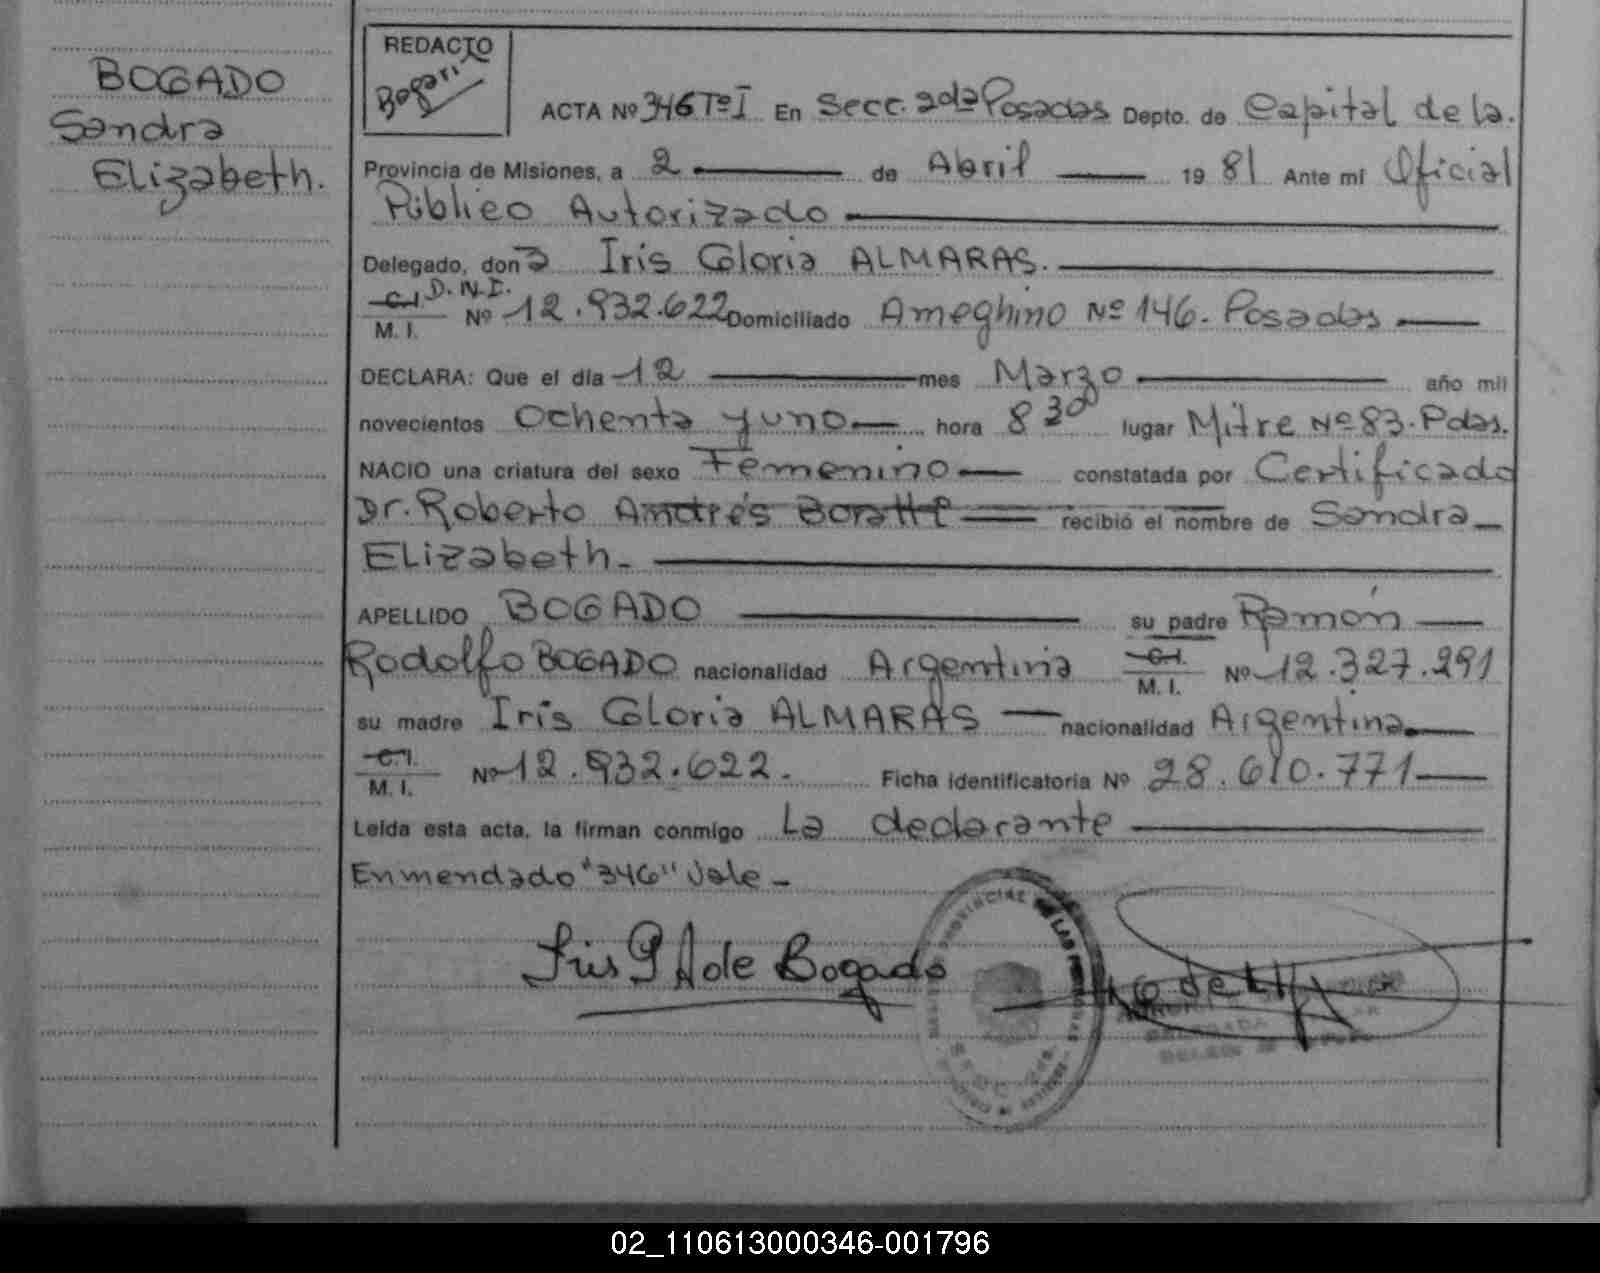 BOGADO
Sandra
Elizabeth.
REDACTO
ACTA Nº 346 Tº I En Secc. 2da Posadas Depto. de Capital de la.
Provincia de Misiones, a 2 de Abril 19 81 Ante mi Oficial
Público Autorizado
Delegado, don a Iris Gloria ALMARAS.
C.I D.N.I.
M. I. Nº 12.932.622 Domiciliado Ameghino Nº 146. Posadas
DECLARA: Que el día 12 mes Marzo año mil
novecientos Ochenta y uno hora 8 30 lugar Mitre Nº 83. Pdas.
NACIO una criatura del sexo Femenino constatada por Certificado
Dr. Roberto Andrés recibió el nombre de Sandra
Elizabeth.
APELLIDO BOGADO su padre Ramón
Rodolfo BOGADO nacionalidad Argentina C.I. M. I. Nº 12.327.291
su madre Iris Gloria ALMARAS nacionalidad Argentina
C.I. M. I. Nº 12.932.622. Ficha identificatoria Nº 28.610.771
Leída esta acta, la firman conmigo La declarante
Enmendado "346" Vale
Iris G A de Bogado
PROVINCIAL DE LAS PERSONAS
DELEGADA
02_110613000346-001796